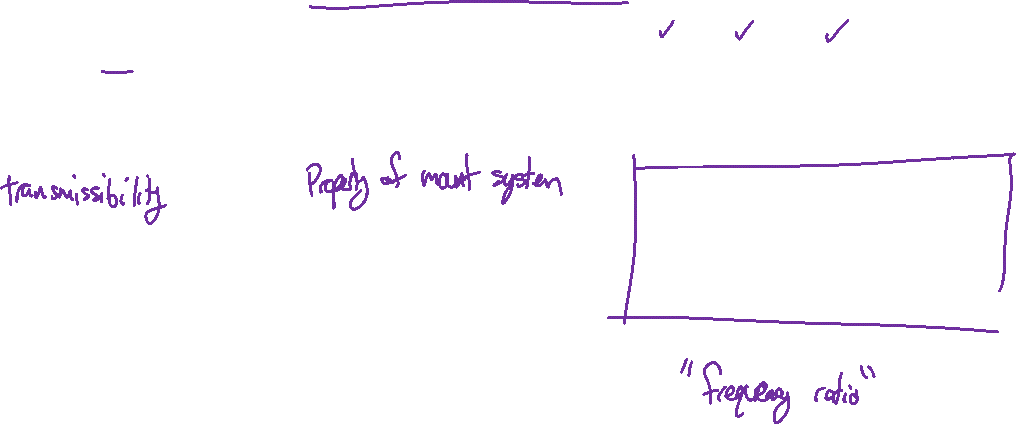 transmissibility
Property of mount system
"frequency ratio"